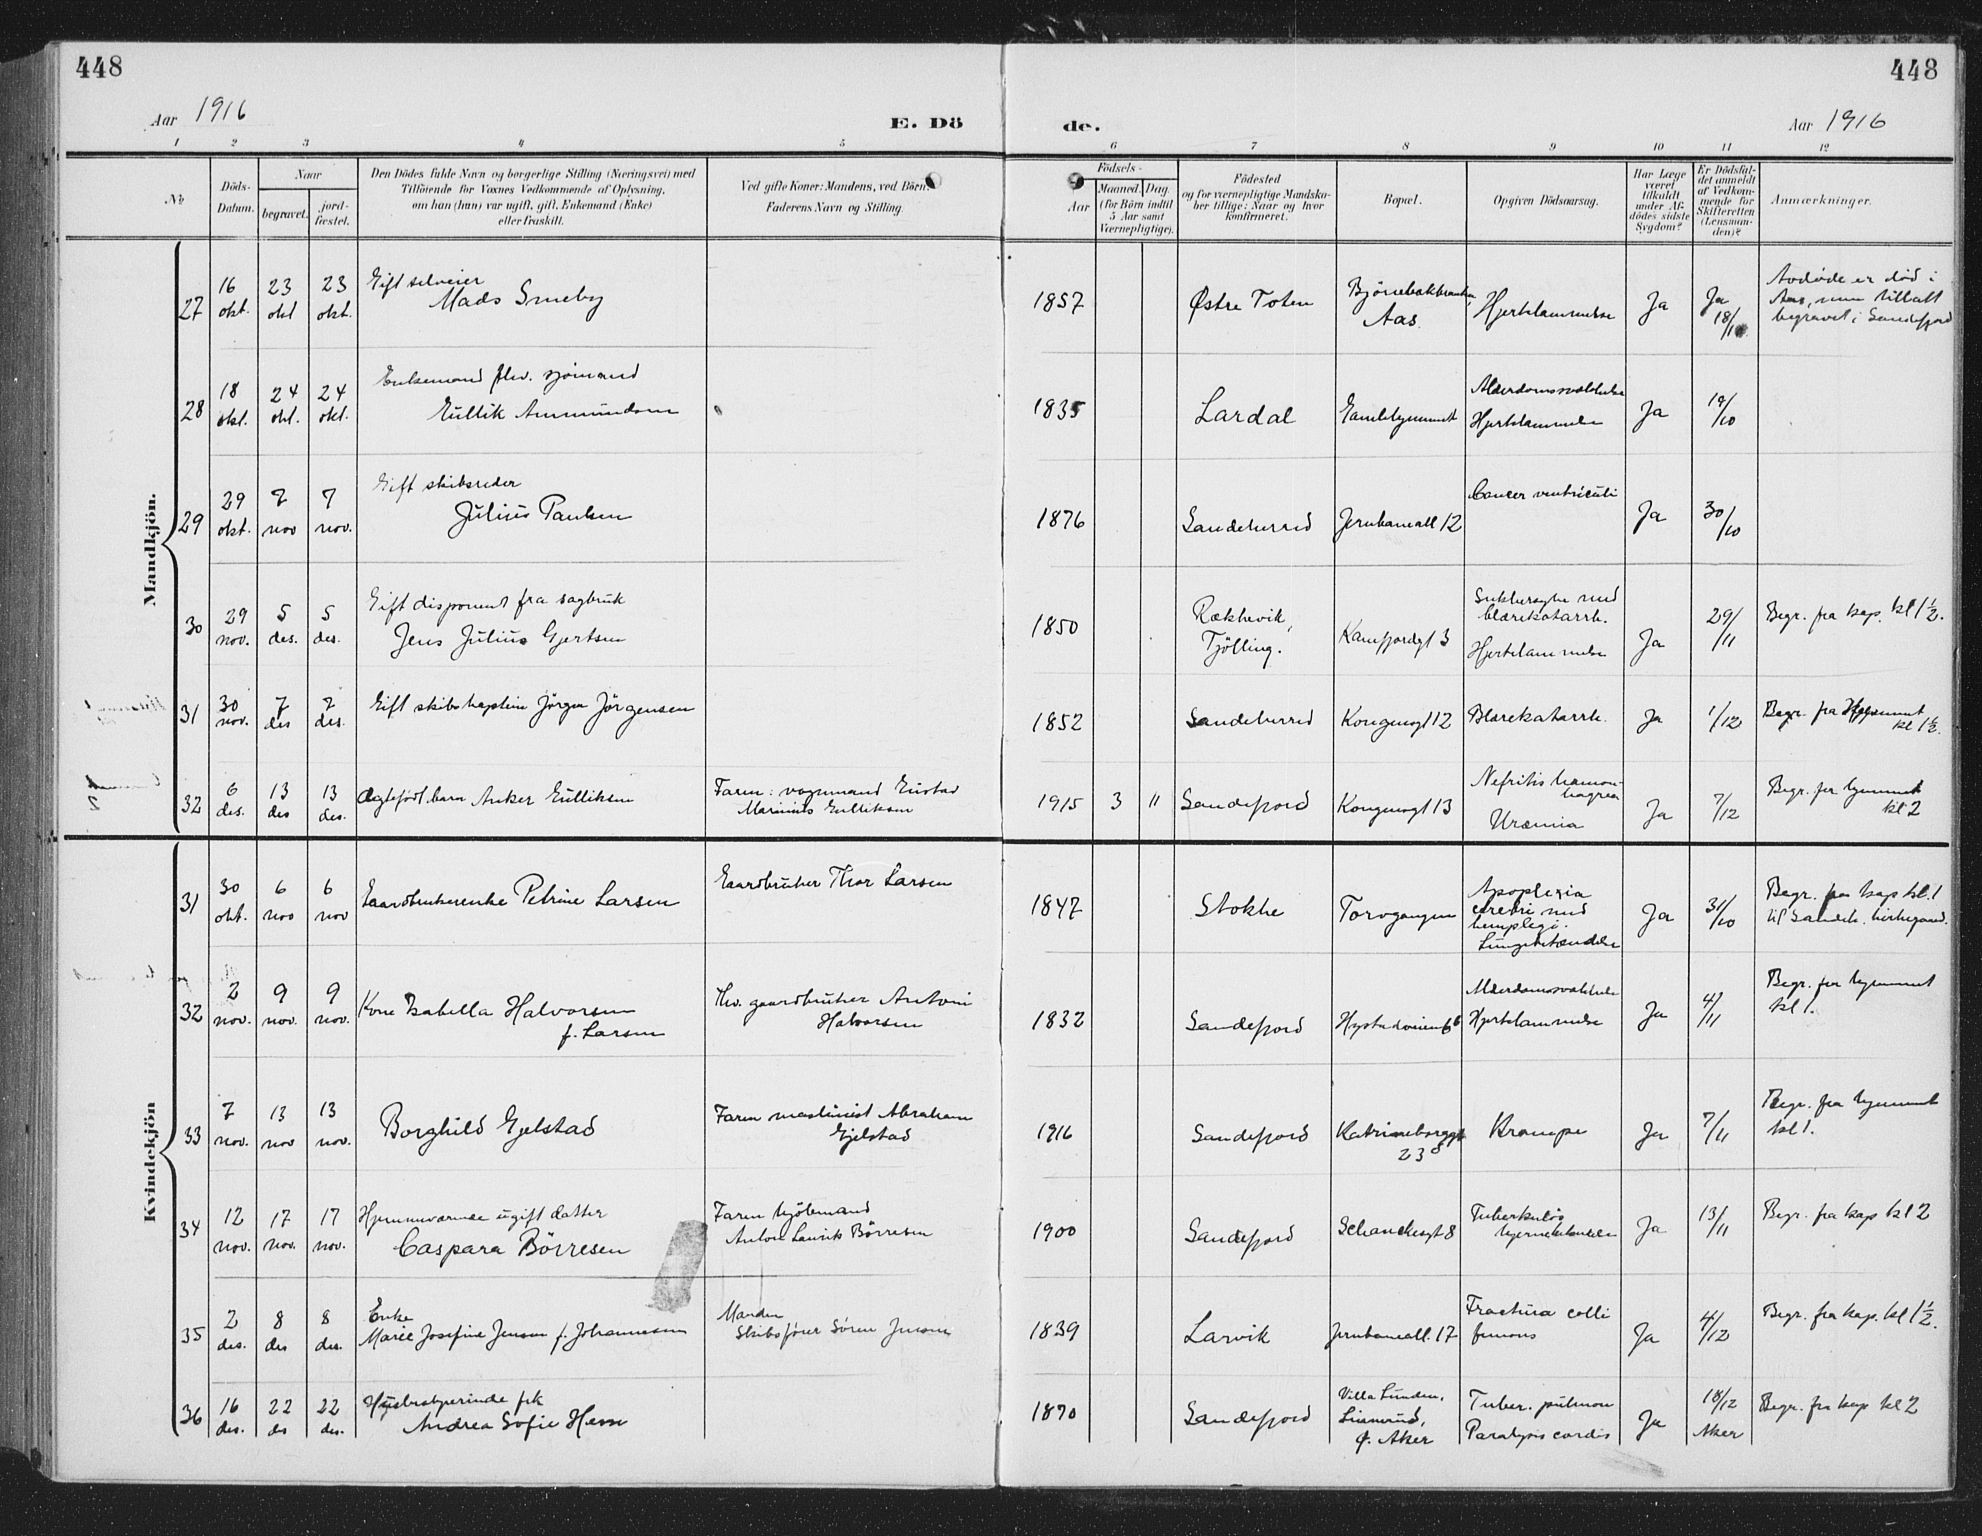 448
448
Aar 1916
E. Dö
de.
Aar 1916
1 2 3 4 5 6 7 8 9 10 11 12
No
Döds-
Datum.
Naar
begravet.
jord-
fæstet.
Den Dödes fulde Navn og borgerlige Stilling (Næringsvei) med
Tilföiende for Voxnes Vedkommende af Oplysning,
om han (hun) var ugift, gift, Enkemand (Enke)
eller fraskilt.
Ved gifte Koner: Mandens, ved Börn:
Faderens Navn og Stilling.
Födsels-
Aar
Maaned. Dag.
(for Börn indtil
5 Aar samt
Værnepligtige).
Födested
og for værnepligtige Mandska-
ber tillige: Naar og hvor
konfirmeret.
Bopæl.
Opgiven Dödsaarsag.
Har Læge
været
tilkaldt
under Af-
dödes sidste
Sygdom?
Er Dödsfal-
det anmeldt
af Vedkom-
mende for
Skifteretten
(Lensman-
den)?
Anmærkninger.
Mandkjön.
27
16
okt.
23
okt
23
okt.
Gift selveier
Mads Smeby
1857
Østre Toten
Aas.
Hjertelammelse
Ja
Ja
18/10.
Avdøde er død i
Aas, men tillatt
begravet i Sandefjord
28
18
okt.
24
okt.
24
okt.
Enkemand fhv. sjömand
Gullik Ammundsen
1835
Lardal
Gamlehjemmet
Alderdomssvakkelse
Hjertelammelse
Ja
19/10
29
29
okt.
7
nov
7
nov.
Gift skibsreder
Julius Paulsen
1876
Sandeherred
Jernbaneall 12
Cancer ventriculi
Ja
30/10
30
29
nov.
5
des.
5
des.
Gift disponent fra sagbruk
Jens Julius Gjertsen
1850
Rækkevik,
Tjölling.
Kamfjordgt 3
Sukkersyke med
blærekatarrh.
Hjertelammelse
Ja
29/11
Begr. fra kap. kl 1½.
31
30
nov.
7
des
7
des.
Gift skibskaptein Jörgen Jörgensen
1852
Sandeherred
Kongensgt 12
Blærekatarrh.
Ja
1/12
Begr. fra Hjemmet
kl 1½.
32
6
des.
13
des
13
des.
Ægtefödt barn Anker Gulliksen
Faren: vognmand Gustav
Marinius Gulliksen
1915 3 11
Sandefjord
Kongensgt 13
Nefritis hæmorr-
hagica
Uræmia
Ja
7/12
Begr. fra hjemmet
kl 2
Kvindekjön
31
30
okt.
6
nov
6
nov
Gaardbrukerenke Petrine Larsen
Gaardbruker Thor Larsen
1847
Stokke
Torvgangen
Apoplexia
cerebri med
hemiplegi.
Lungebetændelse
Ja
31/10
Begr. fra kap kl. 1
til Sandeh. kirkegaard.
32
2
nov.
9
nov.
9
nov.
Kone Isabella Halvorsen
f. Larsen
Fhv. gaardbruker Anton
Halvorsen
1832
Sandefjord
Hystadveien 66
Alderdomssvakkelse
Hjertelammelse
Ja
4/11
Begr. fra hjemmet
kl 1.
33
7
nov.
13
nov
13
nov.
Borghild Gjelstad
Faren maskinist Abraham
Gjelstad
1916
Sandefjord
Katrineborggt
23
Krampe
Ja
7/11
Begr. fra hjemmet
kl 1.
34
12
nov.
17
nov.
17
nov.
Hjemmeværende ugift datter
Caspara Börresen
Faren kjöbmand
Anton Laurits Börresen
1900
Sandefjord
Schanchesgt 8
Tuberkulös
hjernebetændelse
Ja
13/11
Begr. fra kap kl 2
35
2
des.
8
des
8
des.
Enke
Marie Josefine Jensen f. Johannesen
Manden
Skibsförer Sören Jensen
1839
Larvik
Jernbaneall. 17
Fractura colli
femoris
Ja
4/12
Begr. fra kap. kl 1½.
36
16
des.
22
des
22
des.
Husbestyrerinde frk
Andrea Sofie Hem
1870
Sandefjord
Villa Lunden,
Linnerud,
Ø. Aker
Tuber. pulmon
Paralysis cordis
Ja
18/12
Aker
Begr. fra kap kl 2